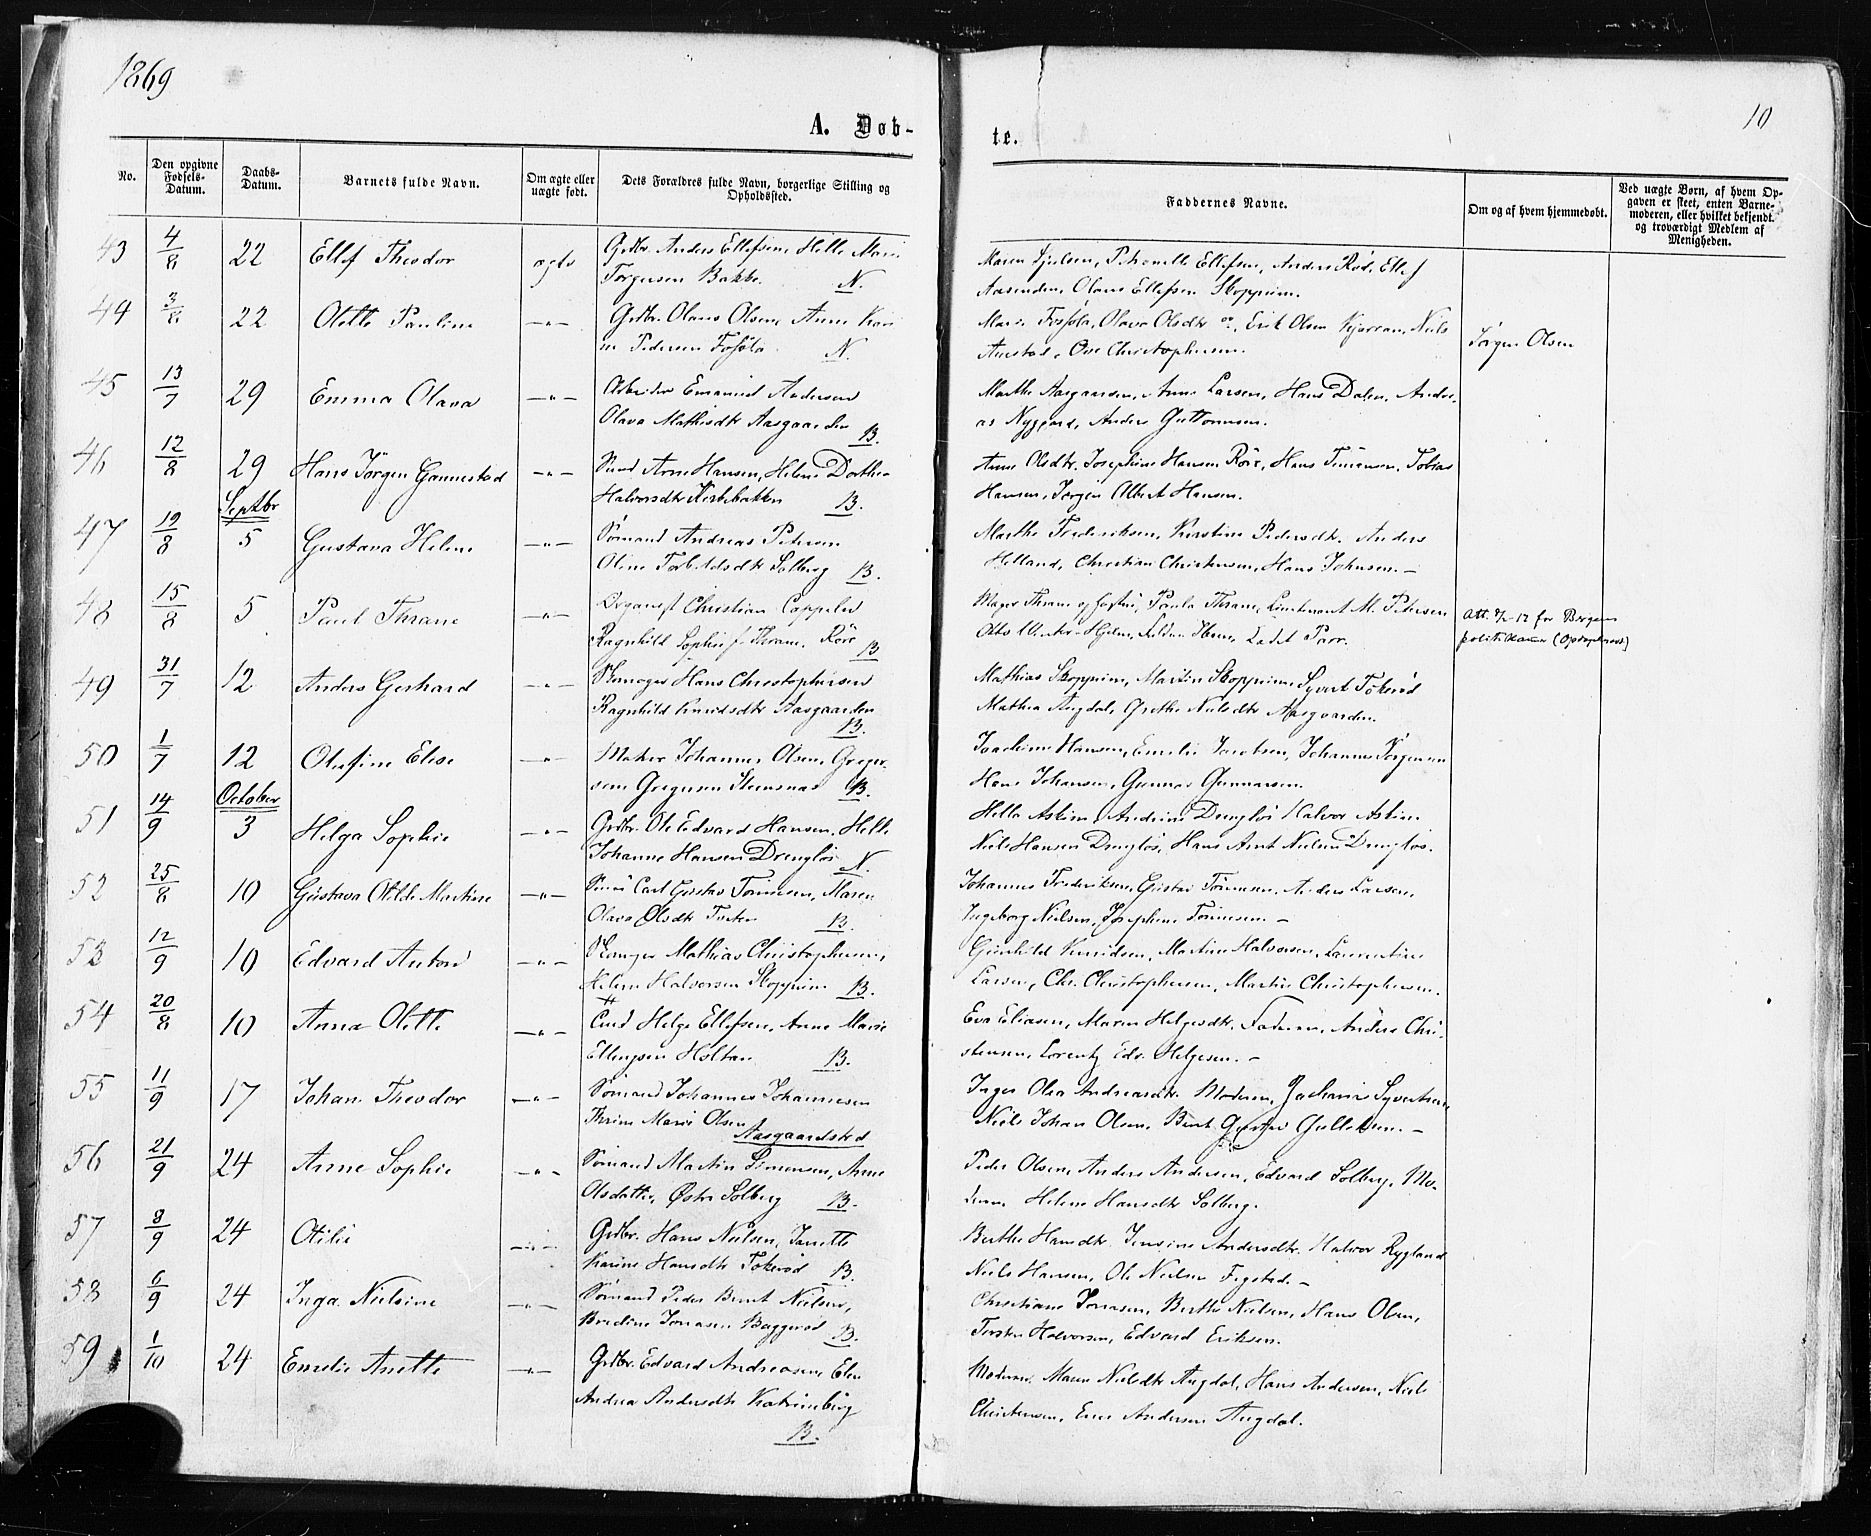 1869
10
A. Døb-
te.
No.
Den opgivne Fødsels-Datum.
Daabs-Datum.
Barnets fulde Navn.
Om ægte eller uægte født.
Dets Forældres fulde Navn, borgerlige Stilling og Opholdssted.
Faddernes Navne.
Om og af hvem hjemmedøbt.
Ved uægte Børn, af hvem Opgaven er skeet, enten Barnemoderen, eller hvilket bekjendt og troværdigt Medlem af Menigheden.
43 4/8 22 Ellef Theodor ægte Grdbr. Anders Ellefsen, Helle Marie
Torgersen Bakke. N.
Maren Petronelle Ellefsen, Anders Röd, Ellef
Aasenden, Olaus Ellefsen Skoppum.
44 3/8 22 Olette Pauline —„— Grdbr. Olaus Olsen Anne Kari-
ne Pedersen N.
Marie Olava Olsdtr Erik Olsen Niels
Ove Christophersen.
Jørgen Olsen
45 13/7 29 Emma Olava —„— Arbeider Emanuel Andersen
Olava Mathisdtr Aasgaarden B.
Marthe Aasgaarden, Anne Larsen, Hans Dalen, Andre-
as Nygaard, Anders Guttormsen.
46 12/8 29 Hans Jörgen Gannestad —„— Arne Hansen, Helene Dorthe
Halvorsdtr Kirkebakken B.
Anne Olsdtr. Josephine Hansen Rörs, Hans Simensen, Tobias
Hansen, Jørgen Albert Hansen.
Septbr
47 19/8 5 Gustava Helene —„— Sömand Andreas Petersen
Oline Solberg B.
Marthe Frederiksen, Kirstine Pedersdtr. Anders
Helland, Christian Christensen, Hans Johnsen. –
48 15/8 5 Paul Thrane —„— Organist Christian Cappelen
Ragnhild Sophie f. Thrane. Rörs B
Major Thrane og Paula Thrane, Lieutenant M. Petersen
Otto Winter-Hjelm, Cadet Parr.
Att. for Bergens
politikamer
49 31/7 12 Anders Gerhard —„— Skomager Hans Christophersen
Ragnhild Knudsdtr Aasgaarden
B.
Mathias Skoppum, Martin Skoppum, Syvert Tokeröd
Mathea Augdal, Grethe Nielsdtr Aasgaarden.
50 1/7 12 Olufine Elise —„— Maler Johannes Olsen, Greger-
sine Gregersen B.
Joachim Hansen, Emilie Jacobsen, Johannes Jörgensen
Hans Johansen, Gunnar Gunnarsen.
October
51 14/9 3 Helga Sophie —„— Grdbr. Ole Edvard Hansen, Helle
Johanne Hansen Drenglös N.
Helle Askim, Andrine Drenglös Halvor Askim
Niels Hansen Drenglös, Hans Arnt Nielsen Drenglös.
52 25/8 10 Gustava Otilde Martine —„— Carl Gustav Tönnesen, Maren
Olava Olsdtr B.
Johannes Frederiksen, Gustav Tönnesen, Anders Larsen,
Ingeborg Nielsen, Josephine Tönnesen. –
53 12/9 10 Edvard Anton —„— Skomager Mathias Christophersen,
Helene Halvorsen Skoppum B.
Gunhild Knudsen, Martine Halvorsen, Laurentine
Larsen, Chr. Christophersen, Martin Christophersen.
54 20/8 10 Anna Olette —„— Helge Ellefsen, Anne Marie
Ellingsen Holtan B.
Eva Eliasen, Maren Helgesdtr, Faderen, Anders Chri-
stensen, Lorentz Edv. Helgesen. –
55 11/9 17 Johan Theodor —„— Sömand Johannes Johannesen
Thrine Marie Olsen
Aasgaardstrd
Inger Olea Andreasdtr. Moderen, Zacharias Syvertsen
Niels Johan Olsen, Bernt Gustav Gulliksen. –
56 21/9 24 Anne Sophie —„— Sömand Martin Simensen, Anne
Olsdatter, Østre Solberg B.
Peder Olsen, Anders Andersen, Edvard Solberg, Mo-
deren, Helene Hansdtr Solberg.
57 8/9 24 Otilie —„— Grdbr. Hans Nielsen, Janette
Karine Hansdtr Tokeröd B.
Berthe Hansdtr Jensine Andersdtr. Halvor Rygland
Niels Hansen, Ole Nielsen –
58 6/9 24 Inga Nielsine —„— Sömand Peder Bernt Nielsen,
Bredine Jonasen Baggeröd B.
Christiane Jonasen, Berthe Nielsen, Hans Olsen,
Torsten Halvorsen, Edvard Eriksen.
59 1/10 24 Emelie Anette —„— Grdbr. Edvard Andreasen Elen
Andrea Andersdtr Katrineberg
B.
Moderen, Maren Nielsdtr Augdal, Hans Andersen, Niels
Christensen, Andersen Augdal.